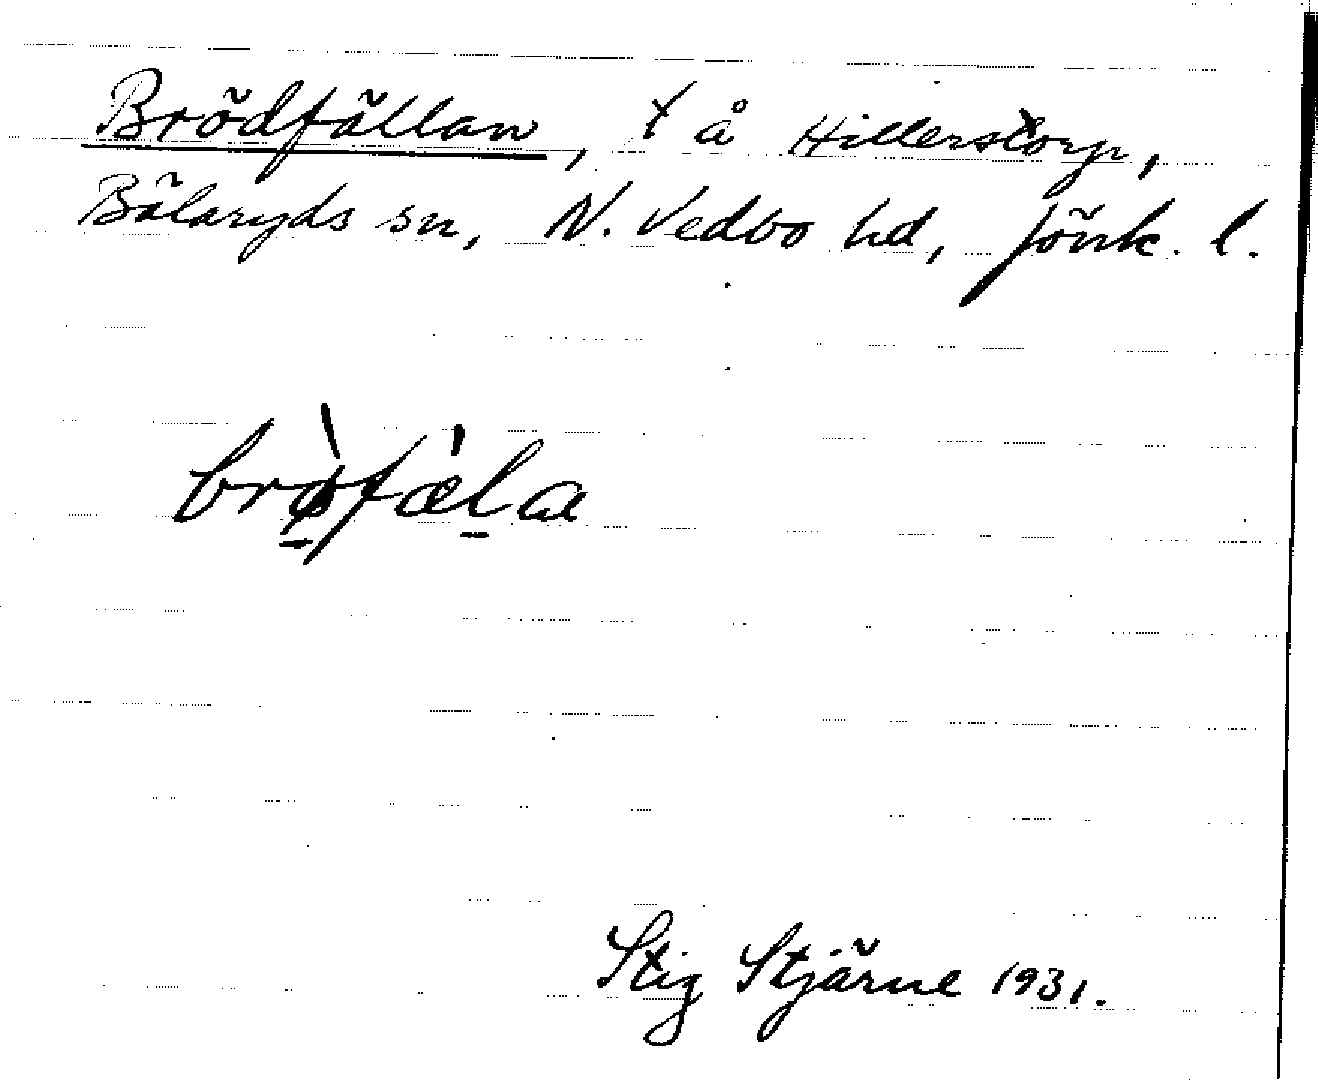 Brödfällan, t å Hillerstorp,
Bälaryds sn, N. Vedbo hd, Jönk. l.
brø̀fæ̀la
Stig Stjärne 1931.